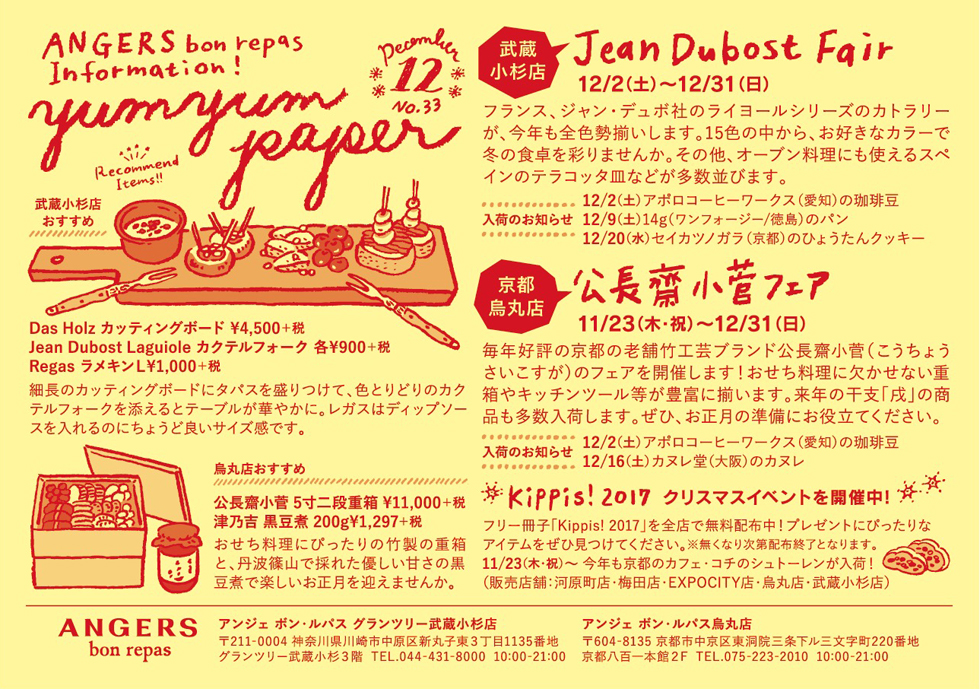 ANGERS bon repas
Information!
yumyum
paper
December
12
No.33
Recommend
Items!!
武蔵小杉店
おすすめ
Das Holz カッティングボード ¥4,500+税
Jean Dubost Laguiole カクテルフォーク 各¥900+税
Regas ラメキンL¥1,000+税
細長のカッティングボードにタパスを盛りつけて、色とりどりのカク
テルフォークを添えるとテーブルが華やかに。レガスはディップソー
スを入れるのにちょうど良いサイズ感です。
烏丸店おすすめ
公長齋小菅 5寸二段重箱 ¥11,000+税
津乃吉 黒豆煮 200g¥1,297+税
おせち料理にぴったりの竹製の重箱
と、丹波篠山で採れた優しい甘さの黒
豆煮で楽しいお正月を迎えませんか。
武蔵
小杉店
Jean Dubost Fair
12/2(土)~12/31(日)
フランス、ジャン・デュボ社のライヨールシリーズのカトラリー
が、今年も全色勢揃いします。15色の中から、お好きなカラーで
冬の食卓を彩りませんか。その他、オーブン料理にも使えるスペ
インのテラコッタ皿などが多数並びます。
入荷のお知らせ
12/2(土)アポロコーヒーワークス(愛知)の珈琲豆
12/9(土)14g(ワンフォージー/徳島)のパン
12/20(水)セイカツノガラ(京都)のひょうたんクッキー
京都
烏丸店
公長齋小菅フェア
11/23(木・祝)~12/31(日)
毎年好評の京都の老舗竹工芸ブランド公長齋小菅(こうちょう
さいこすが)のフェアを開催します!おせち料理に欠かせない重
箱やキッチンツール等が豊富に揃います。来年の干支「戌」の商
品も多数入荷します。ぜひ、お正月の準備にお役立てください。
入荷のお知らせ
12/2(土)アポロコーヒーワークス(愛知)の珈琲豆
12/16(土)カヌレ堂(大阪)のカヌレ
Kippis! 2017 クリスマスイベントを開催中!
フリー冊子「Kippis! 2017」を全店で無料配布中!プレゼントにぴったりな
アイテムをぜひ見つけてください。※無くなり次第配布終了となります。
11/23(木・祝)~ 今年も京都のカフェ・コチのシュトーレンが入荷!
(販売店舗:河原町店・梅田店・EXPOCITY店・烏丸店・武蔵小杉店)
ANGERS
bon repas
アンジェ ボン・ルパス グランツリー武蔵小杉店
〒211-0004 神奈川県川崎市中原区新丸子東3丁目1135番地
グランツリー武蔵小杉3階 TEL.044-431-8000 10:00-21:00
アンジェ ボン・ルパス烏丸店
〒604-8135 京都市中京区東洞院三条下ル三文字町220番地
京都八百一本館2F TEL.075-223-2010 10:00-21:00